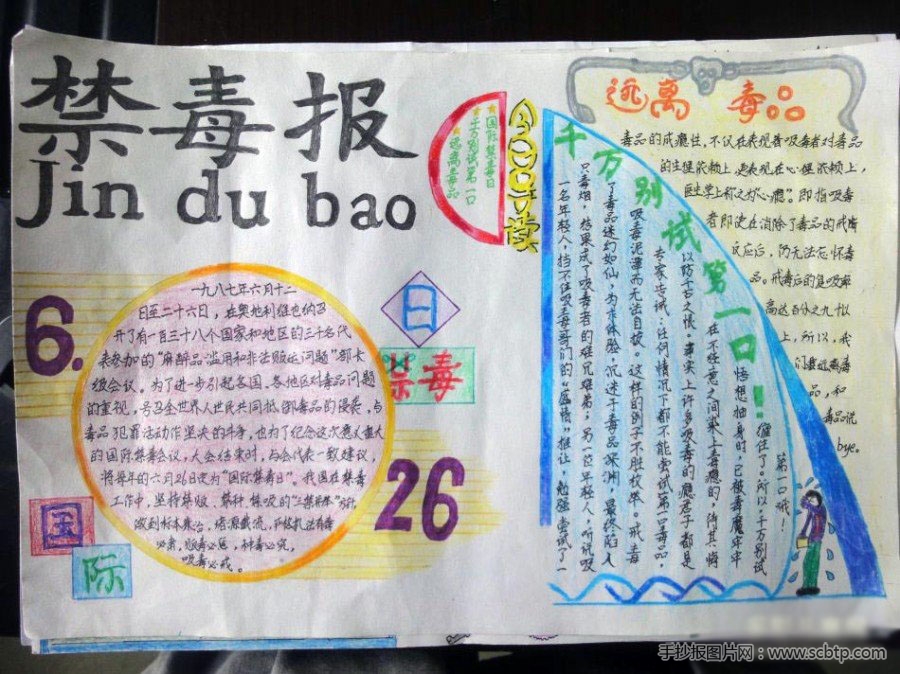 禁毒报
Jin du bao
国际禁毒日
千万别试第一口
远离毒品
逃离 毒品
毒品的成瘾性,不仅在表现者吸毒者对毒品
的生理依赖上,更表现在心理依赖上,
医生学上称之为"心瘾"。即指吸毒
者即使在消除了毒品的戒断
反应后,仍无法忘怀毒
品。戒毒后的复吸率
高达百分之九十以
上,所以,我
们要远离毒
品,和
毒品说
bye。
千万别试第一口!
一名年轻人,挡不住吸毒哥们的"盛情"推让,勉强尝试了一
只毒烟,结果成了吸毒者的难兄难弟;另一位年轻人,听说吸
了毒品迷幻如仙,为求体验,沉迷于毒品深渊,最终陷入
吸毒泥潭而无法自拔。这样的例子不胜枚举。戒毒
专家告诫:任何情况下都不能尝试第一口毒品,
以防千古之恨。事实上许多吸毒的瘾君子都是
在不经意之间染上毒瘾的,待其悔
悟想抽身时,已被毒魔牢牢
缠住了。所以千万别试
第一口哦!
6.
26
国
际
禁毒
日
一九八七年六月十二
日至二十六日,在奥地利维也纳召
开了有一百三十八个国家和地区的三千名代
表参加的"麻醉品滥用和非法贩运问题"部长
级会议。为了进一步引起各国、各地区对毒品问题
的重视,号召全世界人世民共同抵御毒品的侵袭,与
毒品犯罪活动作坚决的斗争,也为了纪念这次意义重大
的国际禁毒会议,大会结束时,与会代表一致建议,
将每年的六月26日定为"国际禁毒日"。我国在禁毒
工作中,坚持禁贩、禁种、禁吸的"三禁并举"方针,
做到标本兼治,堵源截流,严格执法有毒
必肃,贩毒必惩,种毒必究,
吸毒必戒。
手抄报图片网:www.scbtp.com